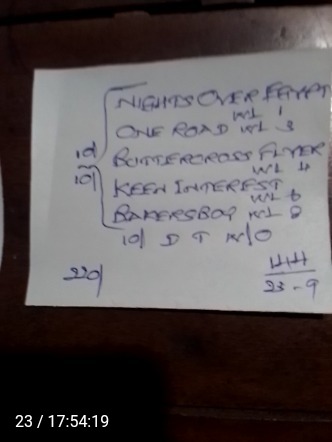 NIGHTS OVER EGYPT
W/L 1
ONE ROAD W/L 3
BUTTERCROSS FLYER
W/L 4
KEEN INTEREST
W/L 6
BAKERSBOY W/L 8
10/ D T W/O
220/
44
23-9
23 / 17:54:19